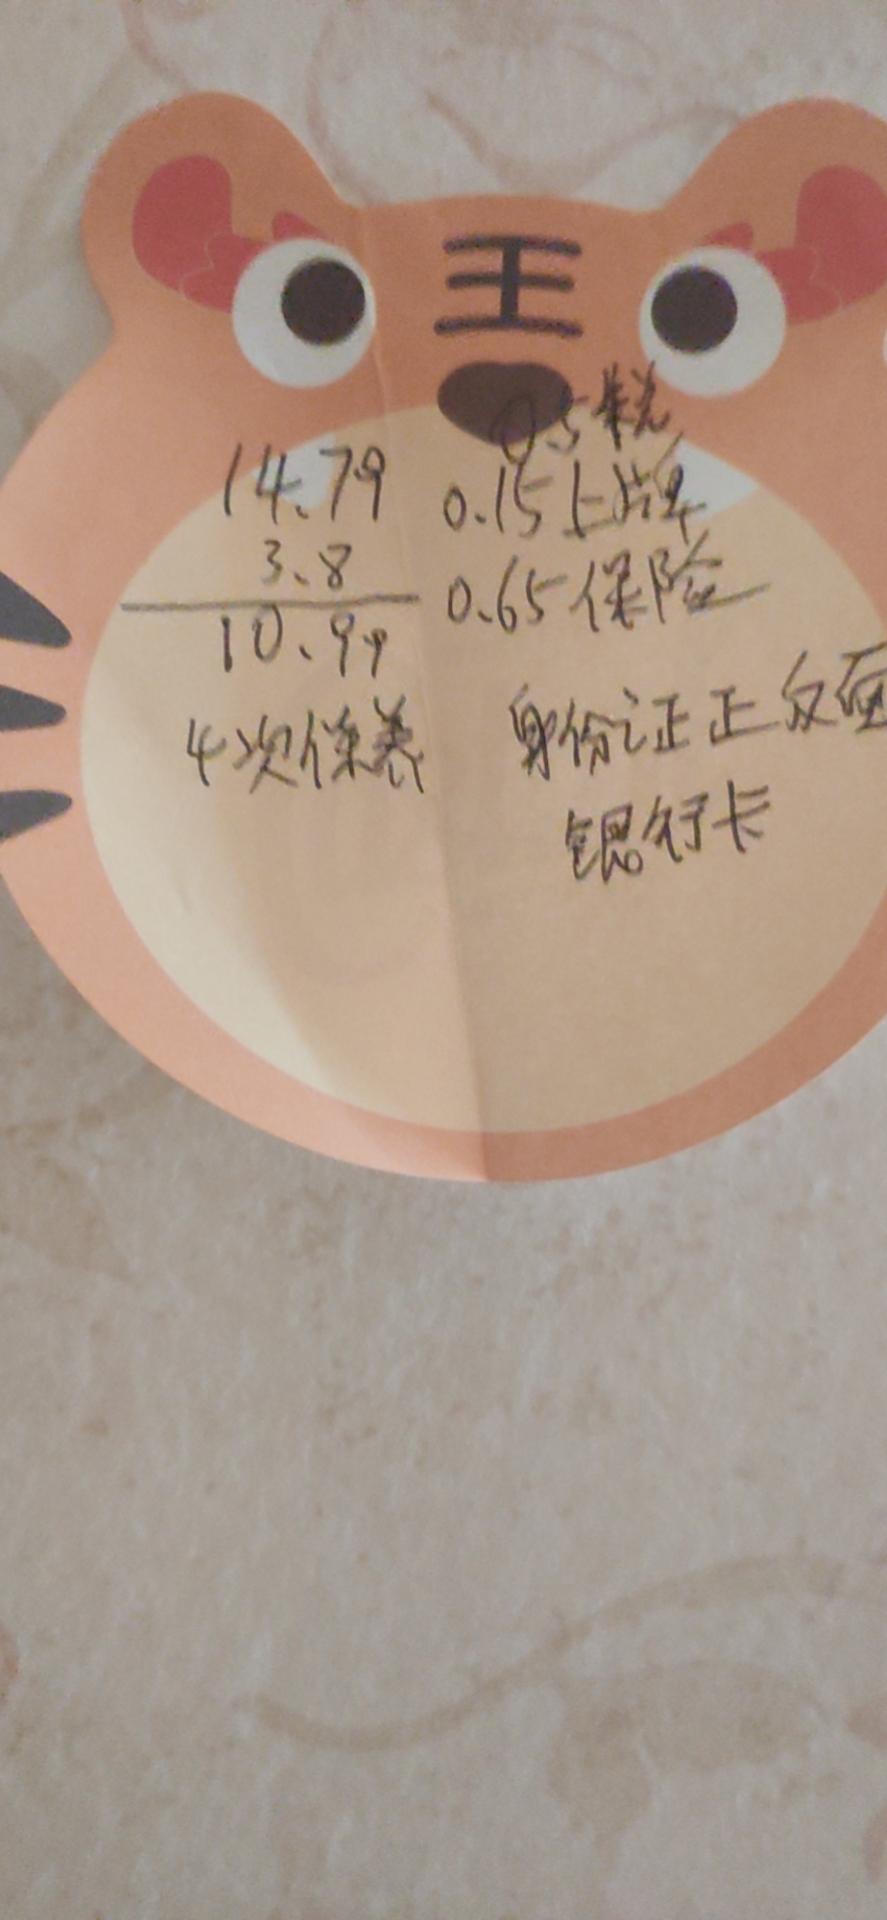 王
0.5
14.79 0.15上牌
3.8 0.65保险
10.99
4次保养 身份证正反面
银行卡